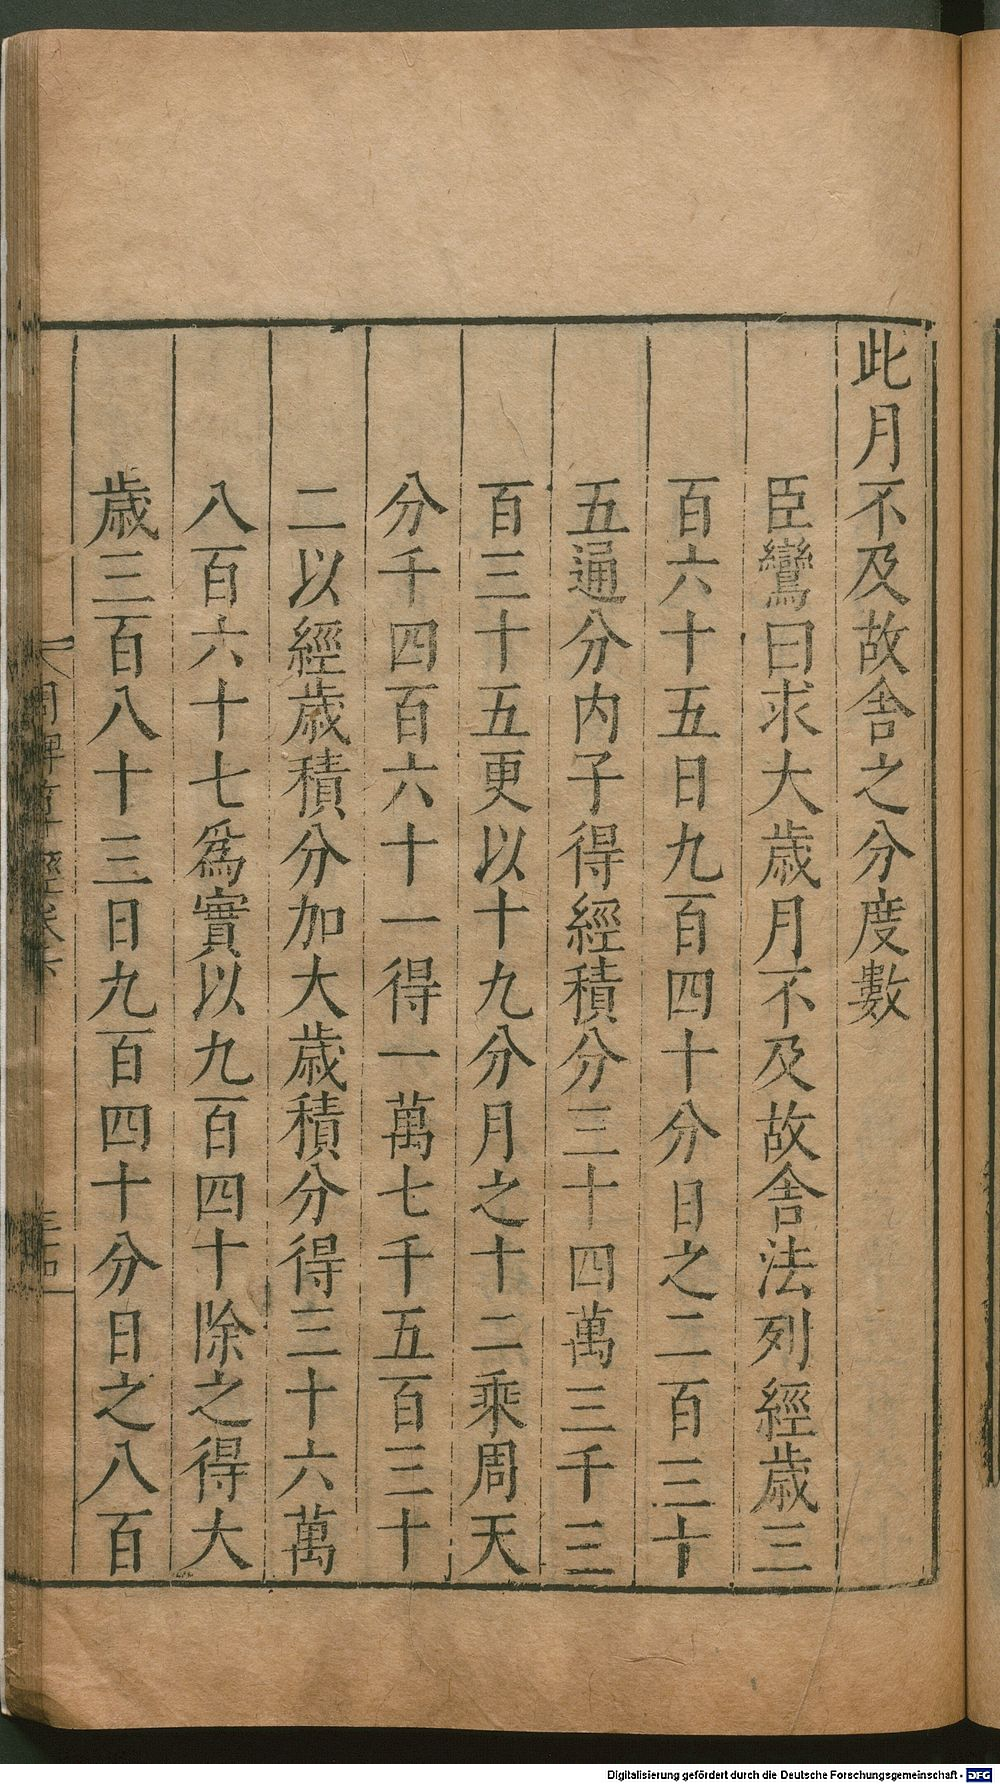 此月不及故舍之分度數
臣鸞曰求大歲月不及故舍法列經歲三
百六十五日九百四十分日之二百三十
五通分内子得經積分三十四萬三千三
百三十五更以十九分月之十二乘周天
分千四百六十一得一萬七千五百三十
二以經歲積分加大歲積分得三十六萬
八百六十七爲實以九百四十除之得大
歲三百八十三日九百四十分日之八百
周髀算經卷下
Digitalisierung gefördert durch die Deutsche Forschungsgemeinschaft - DFG